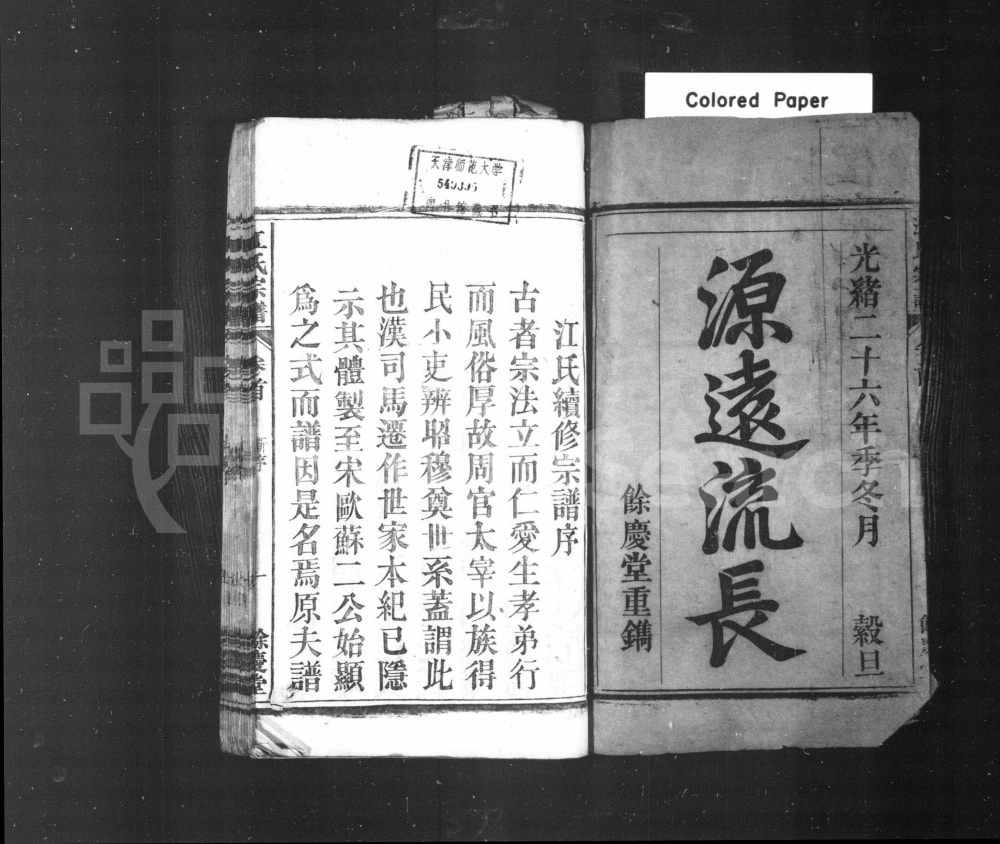 Colored Paper
光緒二十六年季冬月 穀旦
源遠流長
餘慶堂重鐫
天津师范大学
江氏續修宗譜序
古者宗法立而仁愛生孝弟行
而風俗厚故周官太宰以族得
民小吏辨昭穆奠世系蓋謂此
也漢司馬遷作世家本紀已隱
示其體製至宋歐蘇二公始顯
爲之式而譜因是名焉原夫譜
江氏宗譜
卷首
餘慶堂